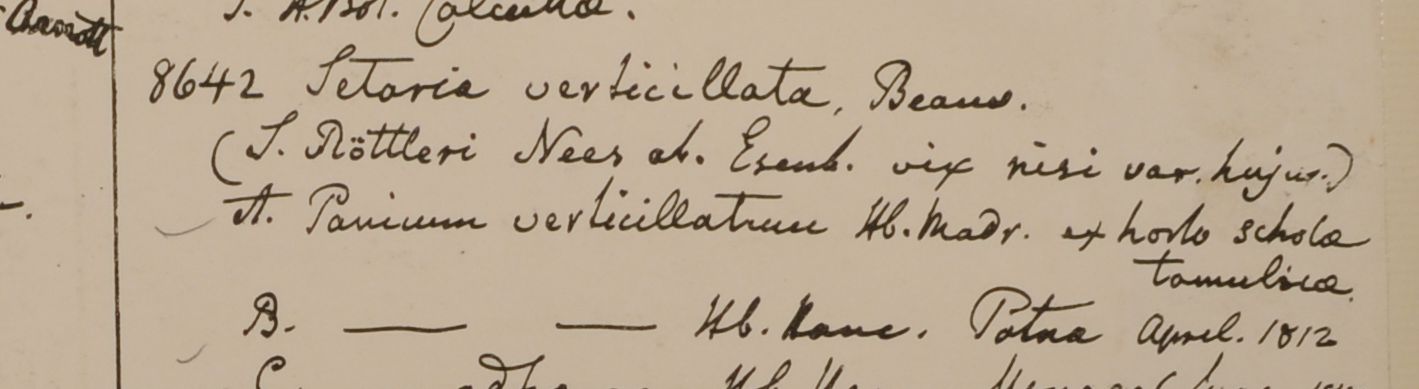 H. Bot. Calcutta.
8642 Setaria verticillata, Beauv.
(S. Röttleri Nees ab. Esenb. vix nisi var. hujus.)
A. Panicum verticillatum Hb. Madr. ex horto scholæ
tamulicæ.
B. —— —— Hb. Ham. Patna April. 1812